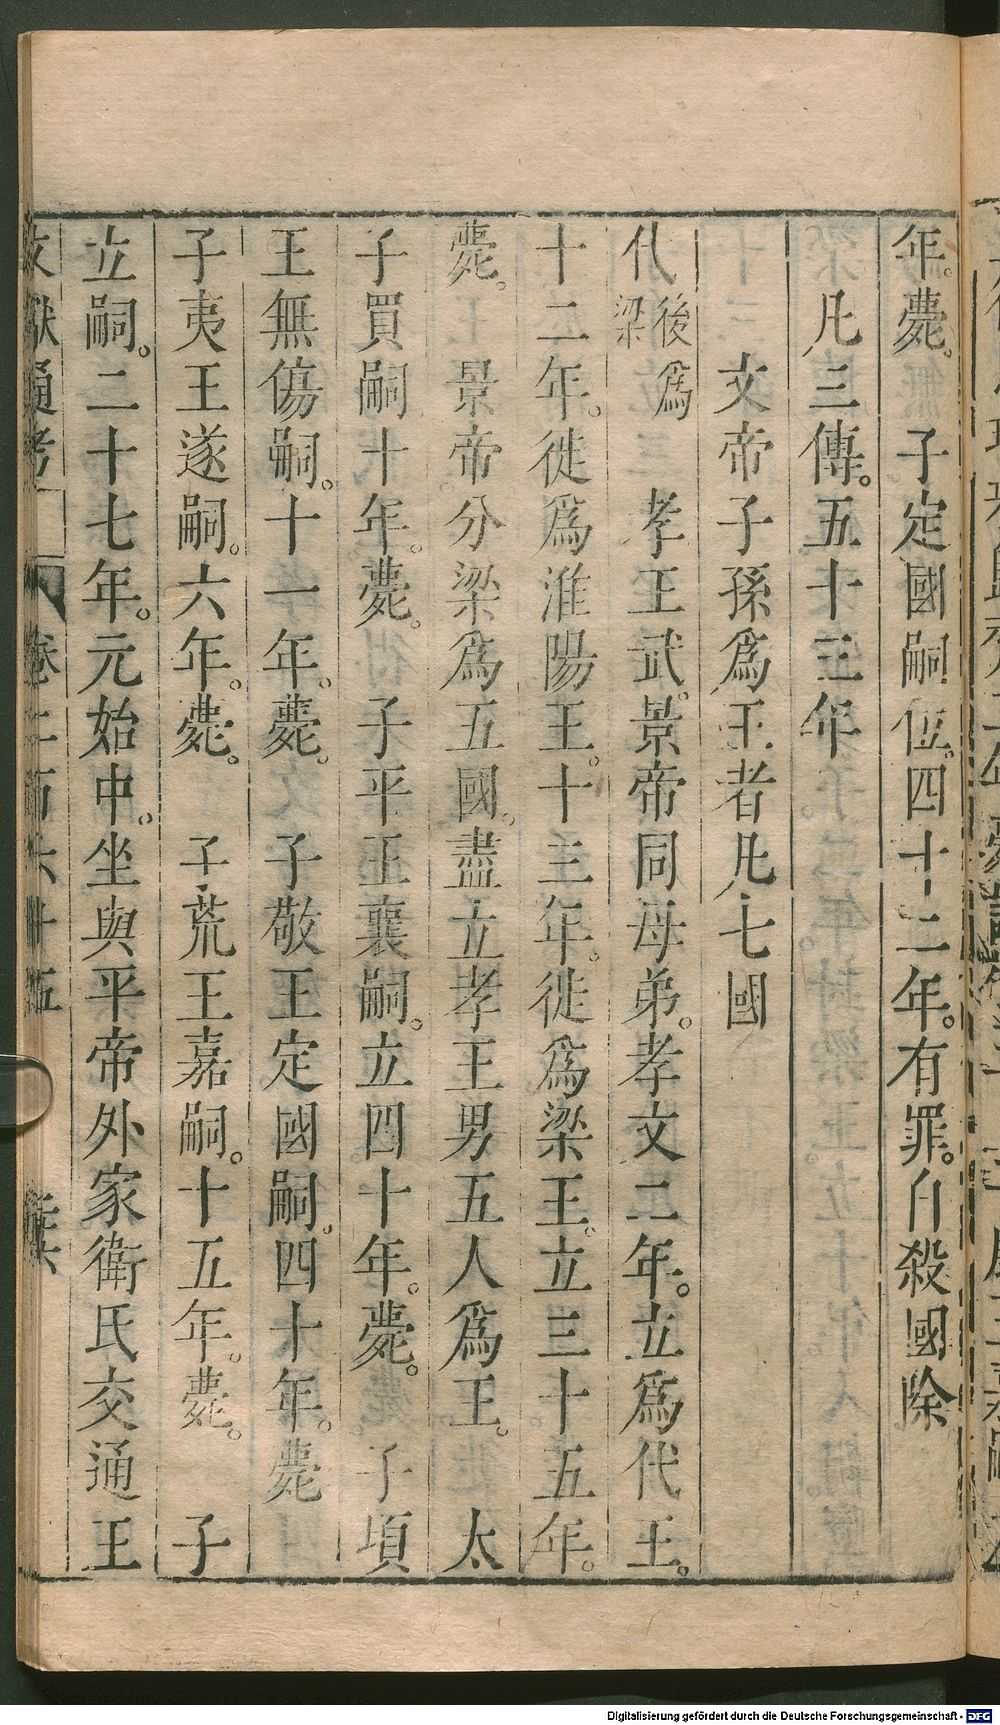 年。薨。　子定國嗣位。四十二年。有罪。自殺國除
凡三傳。五十三年
文帝子孫爲王者凡七國
代後爲梁　孝王武。景帝同母弟。孝文二年。立爲代王。
十二年。徙爲淮陽王。十三年。徙爲梁王。立三十五年。
薨。　景帝分梁爲五國。盡立孝王男五人爲王。　太
子買嗣十年。薨。　子平王襄嗣。立四十年。薨。　子頃
王無傷嗣。十一年。薨。　子敬王定國嗣。四十年。薨
子夷王遂嗣。六年。薨。　子荒王嘉嗣。十五年。薨。　子
立嗣。二十七年。元始中。坐與平帝外家衛氏交通王
文獻通考　卷二百六十五
Digitalisierung gefördert durch die Deutsche Forschungsgemeinschaft - DFG